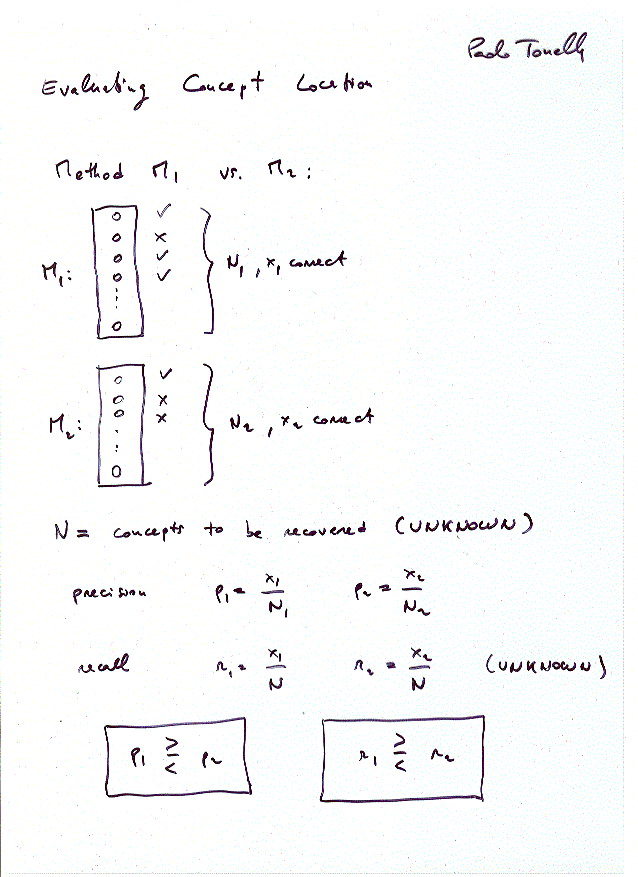 Paolo Tonella
Evaluating Concept Location
Method M1 vs. M2:
M1:
✓
×
✓
✓
N1, x1 correct
M2:
✓
×
×
N2, x2 correct
N = concepts to be recovered (UNKNOWN)
precision p1 = x1/N1 p2 = x2/N2
recall r1 = x1/N r2 = x2/N (UNKNOWN)
p1 ≥< p2 r1 ≥< r2